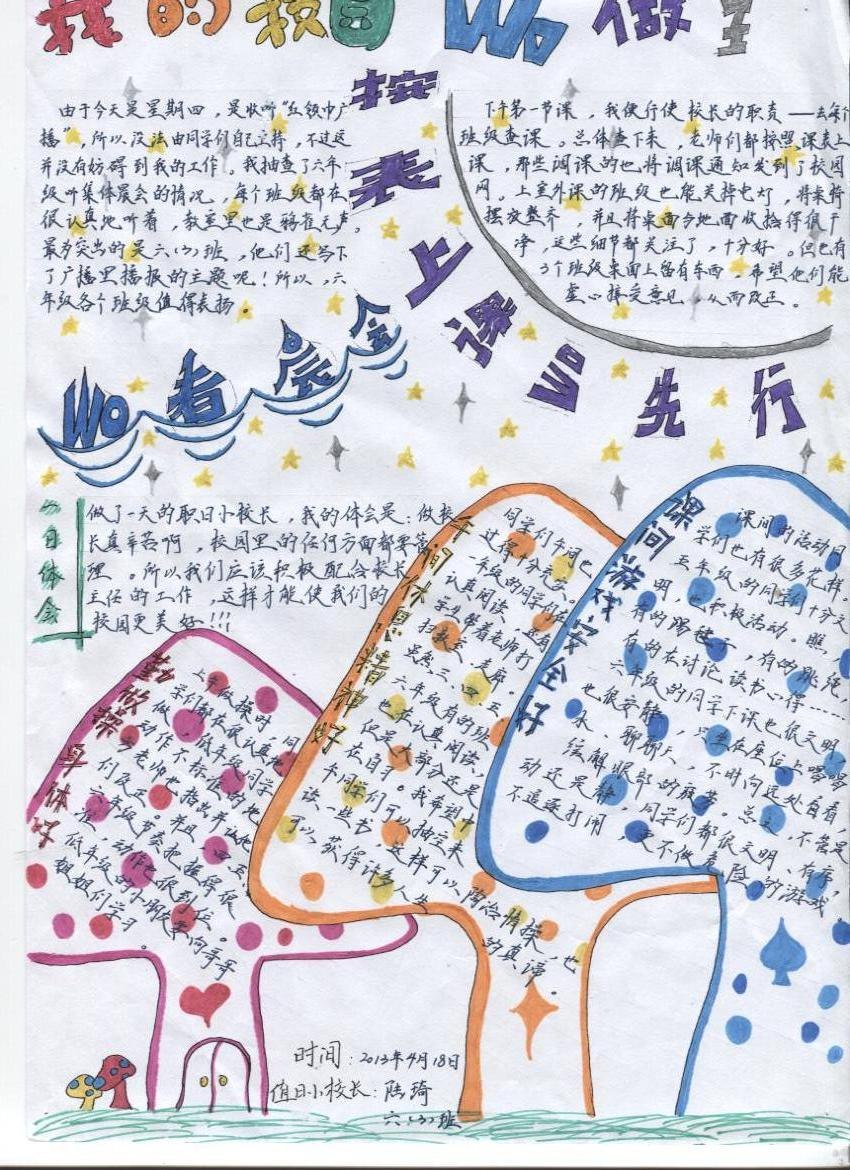 我的校园Wo做主
由于今天是星期四，是收听“红领巾广
播”，所以没法由同学们自己主持，不过这
并没有妨碍到我的工作。我抽查了六年
级听集体晨会的情况，每个班级都在
很认真地听着，教室里也是鸦雀无声。
最为突出的是六（3）班，他们还写下
了广播里播报的主题呢！所以，六
年级各个班级值得表扬。
Wo看晨会
按表上课Wo先行
下午第一节课，我便行使校长的职责——去每个
班级查课。总体查下来，老师们都按照课表上
课，那些调课的也将调课通知发到了校园
网。上室外课的班级也能关掉电灯，将桌椅
摆放整齐，并且将桌面与地面收拾得很干
净，这些细节都关注了，十分好。但也有
3个班级桌面上留有东西，希望他们能
虚心接受意见，从而改正。
今日体会
做了一天的职日小校长，我的体会是：做校
长真辛苦啊，校园里的任何方面都要管
理。所以我们应该积极配合校长
主任的工作，这样才能使我们的
校园更美好！！！
勤做操身体好
上午做操时，同
学们都在很认真地
做，低年级同学
动作不标准的地
老师也指出并让他
们及正。并且，四五
六年级节奏把握得很
准，动作也很到位。
低年级的小朋友要向哥哥
姐姐们学习。
午间休息精神好
同学们午间也
过得十分充实。
一年级的同学们在
认真阅读，还有
学生帮着老师打
扫教室、走廊。
是庶三、四、五
六年级有的班
也在认真阅读、
但是大部分还是
在自习。我希望中
午同学们可以抽空来
读一些书，这样可以陶冶情操，也
可以获得许多人生
的真谛。
课间游戏安全好
课间的活动同
学们也有很多花样。
五年级的同学们十分文
明，也积极活动。瞧，
有的踢毽子，有的跳绳
有的在讨论读书心得……
六年级的同学下课也很文明
也很安静，只坐在座位上喝喝
水、聊聊天，不时向远处自看，
缓解眼部的疲劳。总之，不管是
动还是静，同学们都很文明、有序，
不追逐打闹，更不做危险的游戏。
时间：2013年4月18日
值日小校长：陆琦
六（3）班